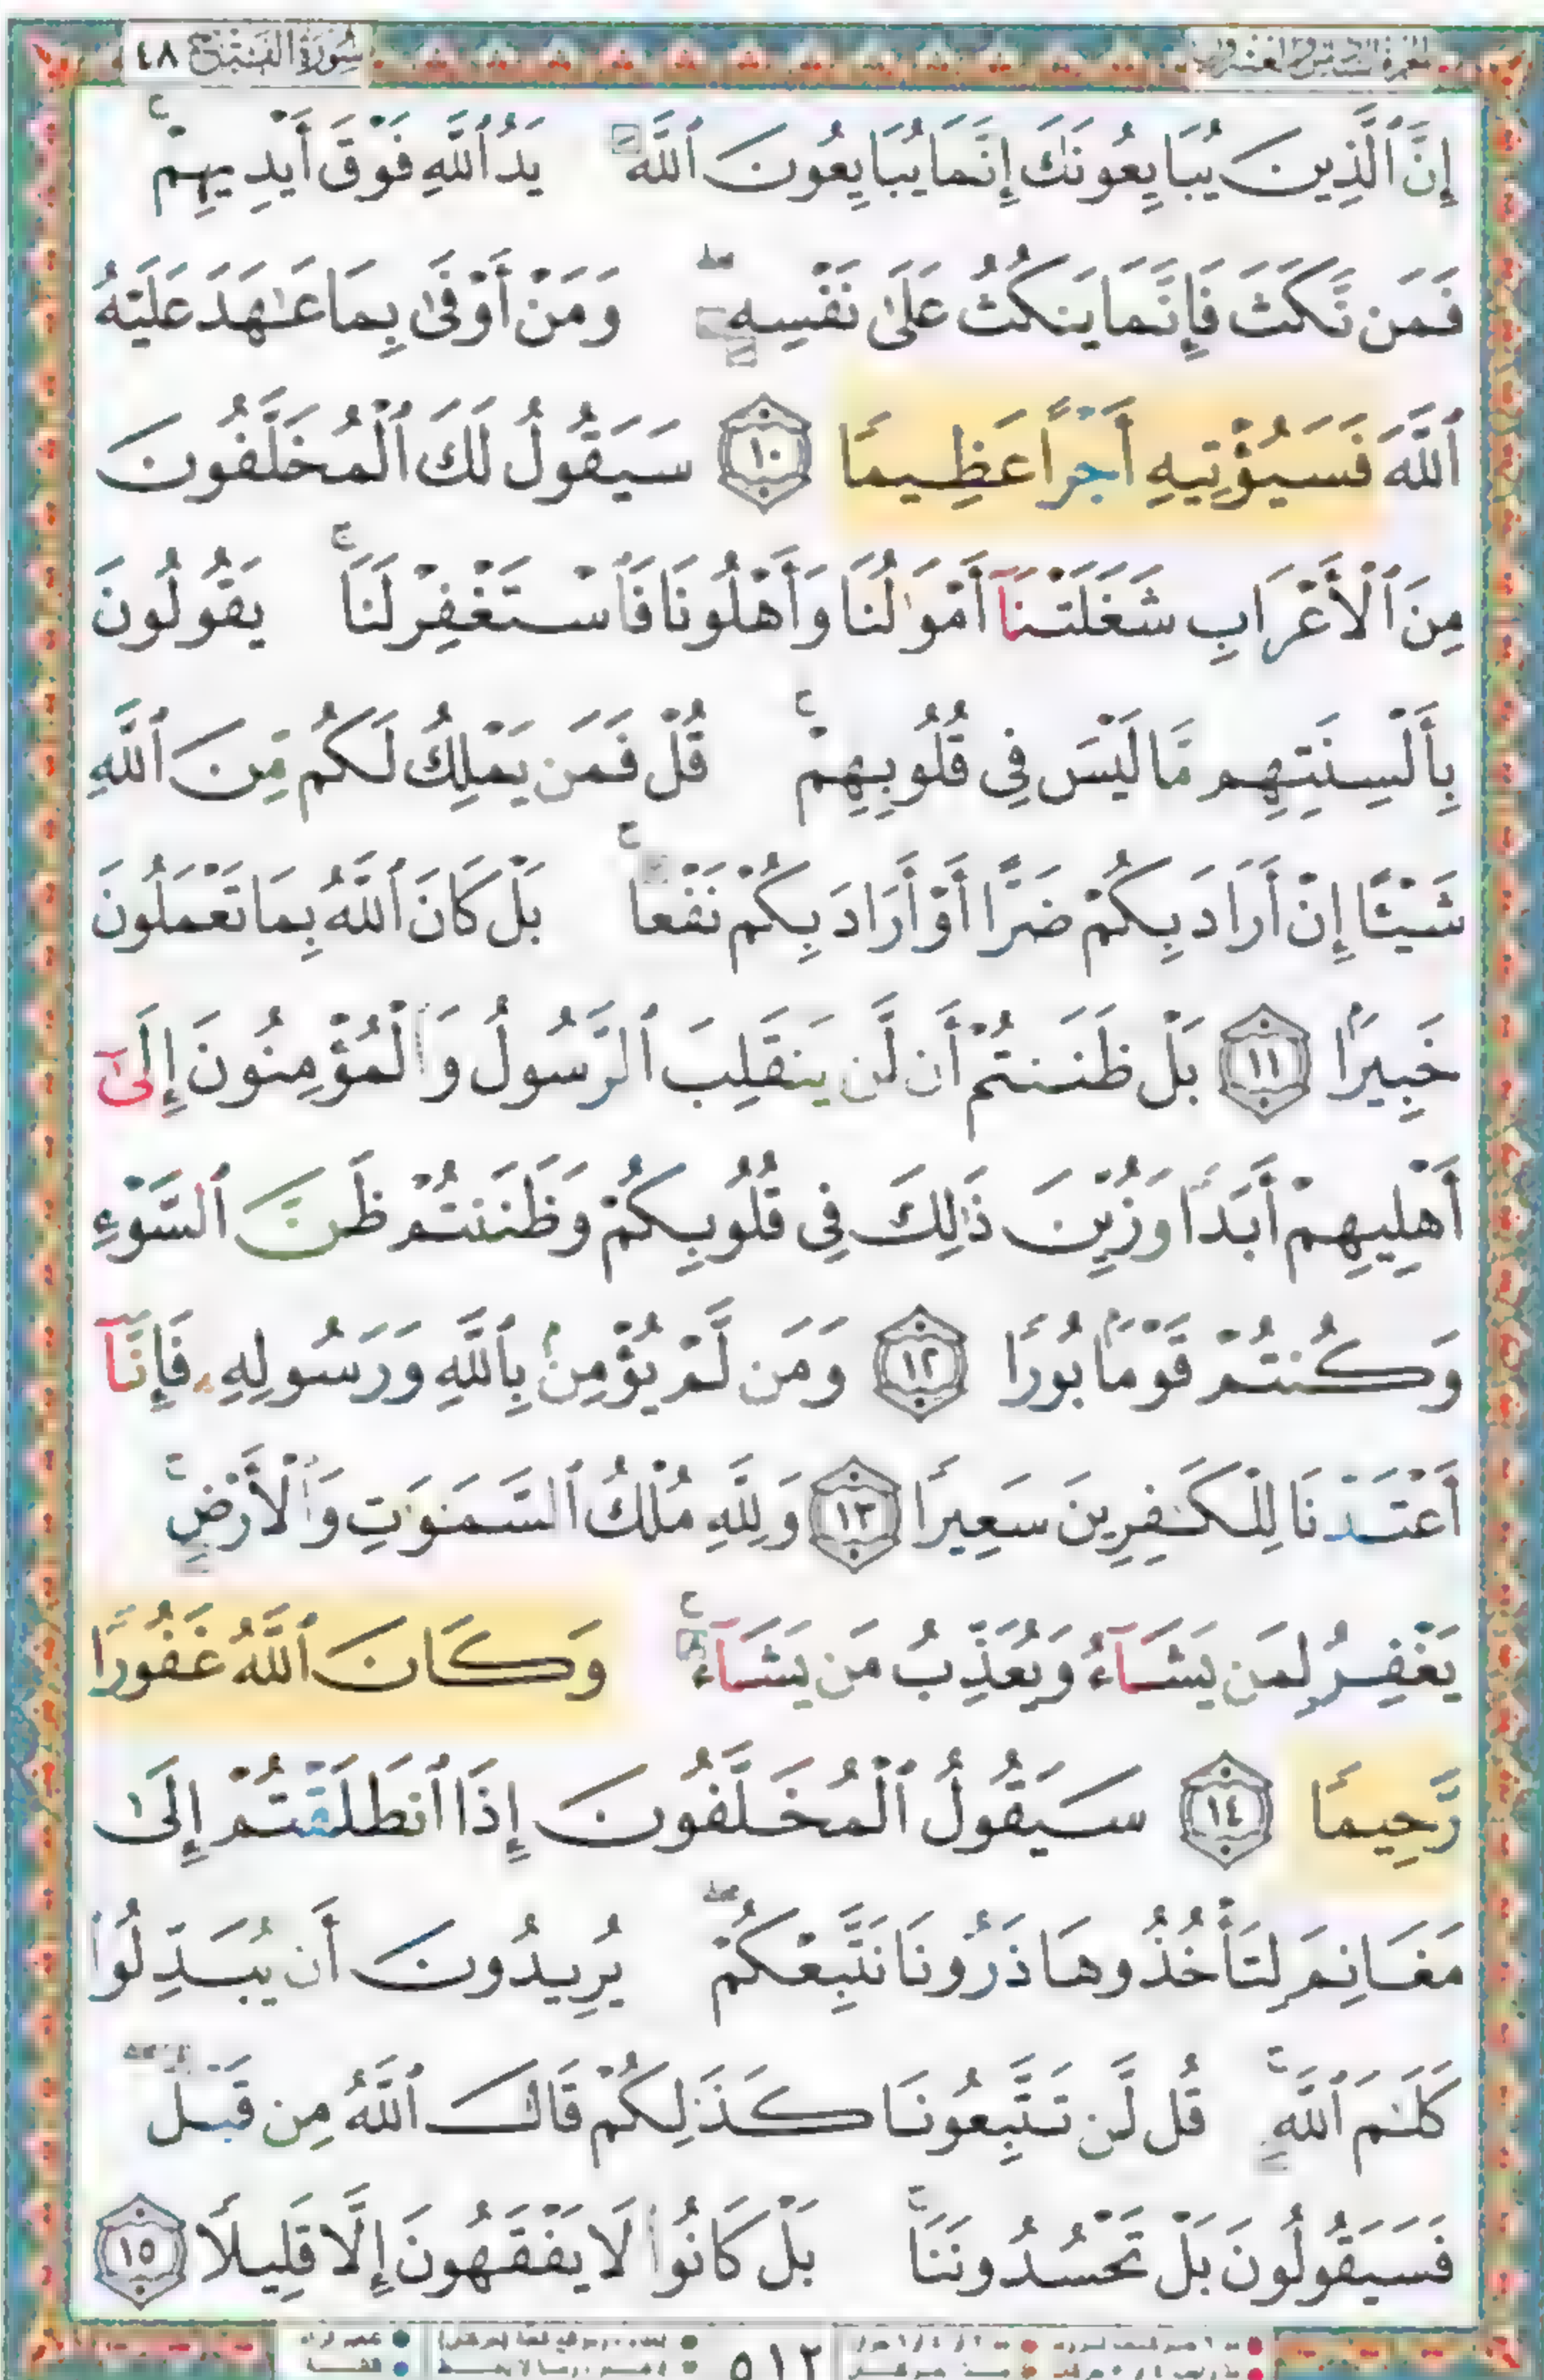 سُورَةُ الْفَتْحِ ٤٨
إِنَّ ٱلَّذِينَ يُبَايِعُونَكَ إِنَّمَا يُبَايِعُونَ ٱللَّهَ يَدُ ٱللَّهِ فَوْقَ أَيْدِيهِمْ ۚ
فَمَن نَّكَثَ فَإِنَّمَا يَنكُثُ عَلَىٰ نَفْسِهِ ۖ وَمَنْ أَوْفَىٰ بِمَا عَـٰهَدَ عَلَيْهُ
ٱللَّهَ فَسَيُؤْتِيهِ أَجْرًا عَظِيمًا ١٠ سَيَقُولُ لَكَ ٱلْمُخَلَّفُونَ
مِنَ ٱلْأَعْرَابِ شَغَلَتْنَآ أَمْوَٰلُنَا وَأَهْلُونَا فَٱسْتَغْفِرْ لَنَا ۚ يَقُولُونَ
بِأَلْسِنَتِهِم مَّا لَيْسَ فِى قُلُوبِهِمْ ۚ قُلْ فَمَن يَمْلِكُ لَكُم مِّنَ ٱللَّهِ
شَيْـًٔا إِنْ أَرَادَ بِكُمْ ضَرًّا أَوْ أَرَادَ بِكُمْ نَفْعًا ۚ بَلْ كَانَ ٱللَّهُ بِمَا تَعْمَلُونَ
خَبِيرًۢا ١١ بَلْ ظَنَنتُمْ أَن لَّن يَنقَلِبَ ٱلرَّسُولُ وَٱلْمُؤْمِنُونَ إِلَىٰٓ
أَهْلِيهِمْ أَبَدًا وَزُيِّنَ ذَٰلِكَ فِى قُلُوبِكُمْ وَظَنَنتُمْ ظَنَّ ٱلسَّوْءِ
وَكُنتُمْ قَوْمًۢا بُورًا ١٢ وَمَن لَّمْ يُؤْمِنۢ بِٱللَّهِ وَرَسُولِهِۦ فَإِنَّآ
أَعْتَدْنَا لِلْكَـٰفِرِينَ سَعِيرًا ١٣ وَلِلَّهِ مُلْكُ ٱلسَّمَـٰوَٰتِ وَٱلْأَرْضِ ۚ
يَغْفِرُ لِمَن يَشَآءُ وَيُعَذِّبُ مَن يَشَآءُ ۚ وَكَانَ ٱللَّهُ غَفُورًا
رَّحِيمًا ١٤ سَيَقُولُ ٱلْمُخَلَّفُونَ إِذَا ٱنطَلَقْتُمْ إِلَىٰ
مَغَانِمَ لِتَأْخُذُوهَا ذَرُونَا نَتَّبِعْكُمْ ۖ يُرِيدُونَ أَن يُبَدِّلُوا۟
كَلَـٰمَ ٱللَّهِ ۚ قُل لَّن تَتَّبِعُونَا كَذَٰلِكُمْ قَالَ ٱللَّهُ مِن قَبْلُ
فَسَيَقُولُونَ بَلْ تَحْسُدُونَنَا ۚ بَلْ كَانُوا۟ لَا يَفْقَهُونَ إِلَّا قَلِيلًا ١٥
٥١٢